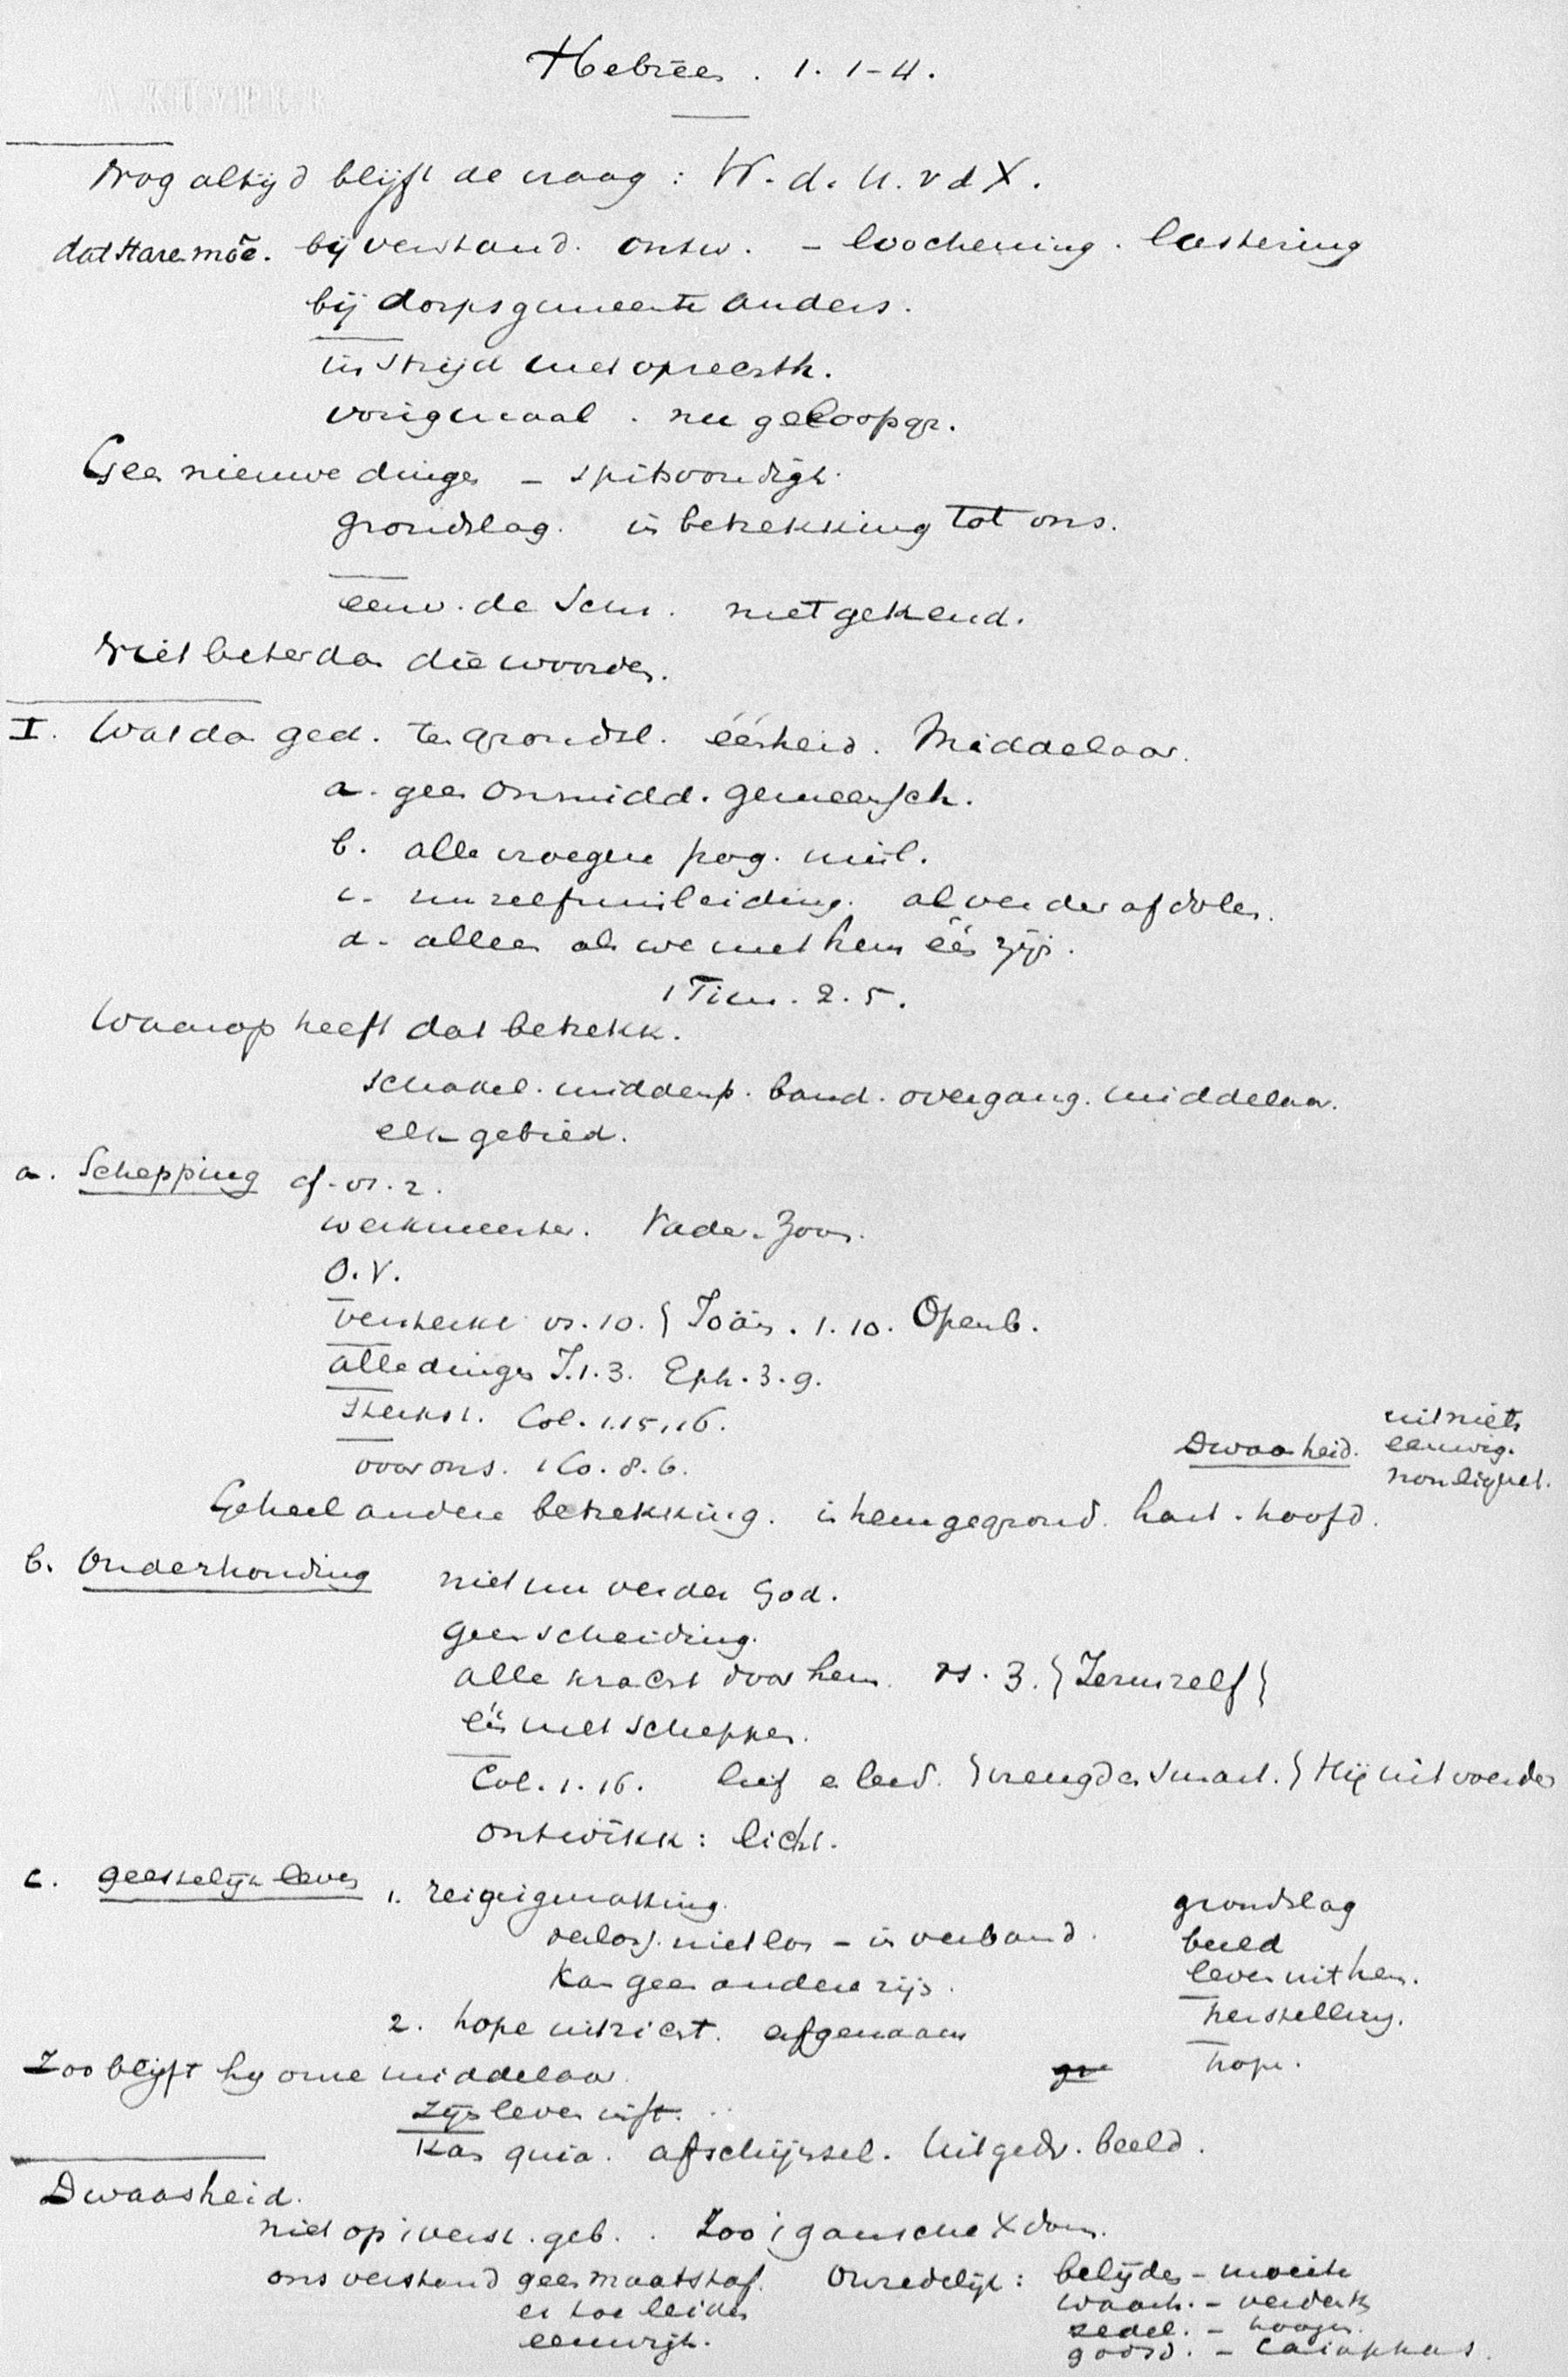 Hebreën. 1. 1-4.
A KUYPER
Nog altijd blijft de vraag: W. d. U. v d X.
dat stare möe. bij verstand. ontw. - loochening. lastering
bij dorpsgemeente anders.
in strijd met opreesth.
vorigmaal. nu geloopgr.
Geen nieuwe dingen - spitsvondigh.
grondslag. in betrekking tot ons.
eenv. de Schr. niet gekend.
Niet beter dan die woorden.
I. Wat dan ged. ten grondsl. éénheid. Middelaar.
a. geen onmidd. gemeensch.
b. alle vroegere pog. miel.
c. nu zelfmisleiding. al verder afdolen.
d. alleen als we met hem één zijn.
1 Tim. 2. 5.
Waarop heeft dat betrekk.
schakel. middenp. band. overgang. middelaar.
elk gebied.
a. Schepping cf. vs. 2.
werkmeester. Vader. Zoon.
O. V.
versterkt vs. 10. { Joän. 1. 10. Openb.
alle dingen J. 1. 3. Eph. 3. 9.
sterkst. Col. 1.15,16.
voor ons. 1 Co. 8. 6.
Dwaasheid. uit niets
eeuwig.
non liquet.
Geheel andere betrekking. in hem gegrond. hart. hoofd.
b. Onderhouding niet nu verder God.
geen scheiding.
alle kracht door hem. vs. 3. { Jezus zelf }
één met schepper.
Col. 1. 16. lief en leed. } vreugd en smart. } Hij uit voorden
ontwikk: licht.
c. geestelijk leven 1. reinigmaking. grondslag
verloss. niet los - in verband. beeld
kan geen andere zijn. leven uit hem.
2. hope uitzicht. erfgenaam herstelling.
Zoo blijft hij onze middelaar. gr hope.
zijn leven uift.
kan quia. afschijnsel. Uitgedr. beeld.
Dwaasheid.
niet op 't verst. geb. . Zoo 't gansche Xdom.
ons verstand geen maatstaf. Onredelijk: belijden - moeite
er toe leiden waarh. - verderk
eeuwigh. zedel. - hooger.
godsd. - Caiaphas.